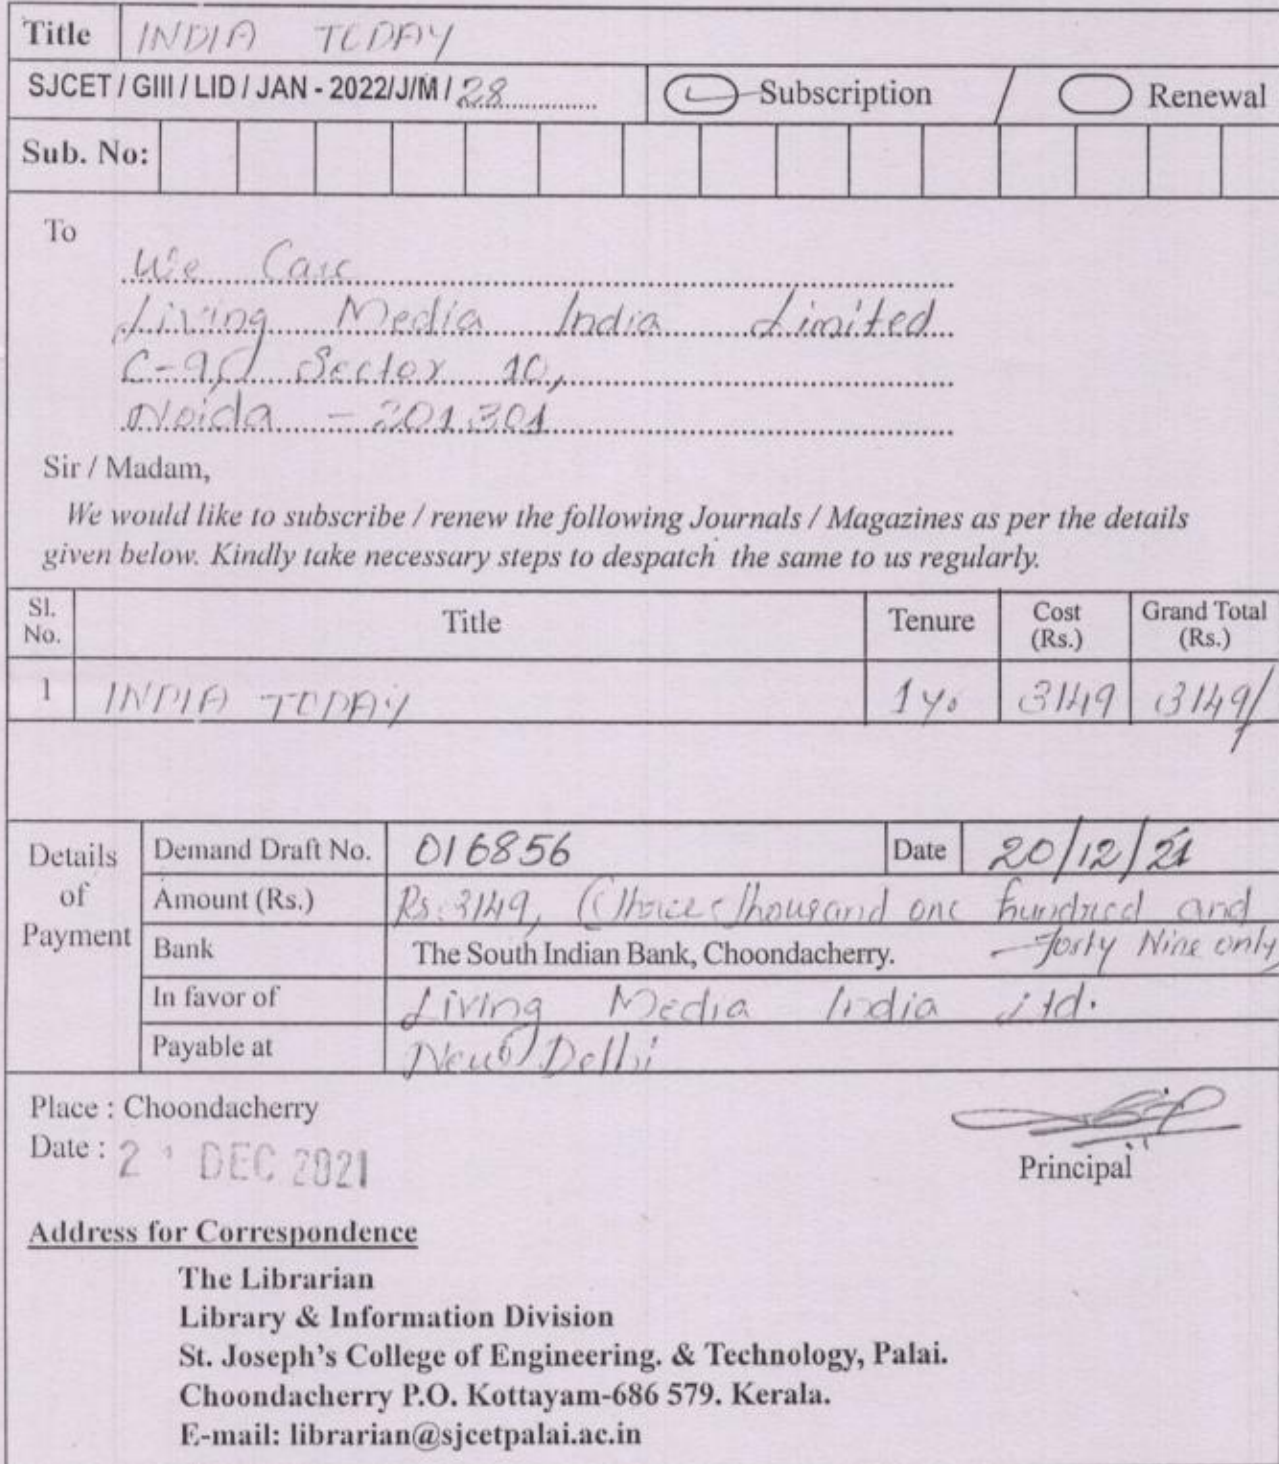 Title INDIA TODAY
SJCET / GIII / LID / JAN - 2022/J/M / 28 Subscription / Renewal
Sub. No:
To
We Care
Living Media India Limited
Sector 10,
Noida - 201301
Sir / Madam,
We would like to subscribe / renew the following Journals / Magazines as per the details
given below. Kindly take necessary steps to despatch the same to us regularly.
Sl. No. Title Tenure Cost (Rs.) Grand Total (Rs.)
1 INDIA TODAY 1 yr 3149 3149/
Details of Payment
Demand Draft No. 016856 Date 20/12/21
Amount (Rs.) Rs. 3149, (Three thousand one hundred and
forty Nine only
Bank The South Indian Bank, Choondacherry.
In favor of Living Media India Ltd.
Payable at New Delhi
Place : Choondacherry
Date : DEC 2021
Principal
Address for Correspondence
The Librarian
Library & Information Division
St. Joseph's College of Engineering. & Technology, Palai.
Choondacherry P.O. Kottayam-686 579. Kerala.
E-mail: librarian@sjcetpalai.ac.in